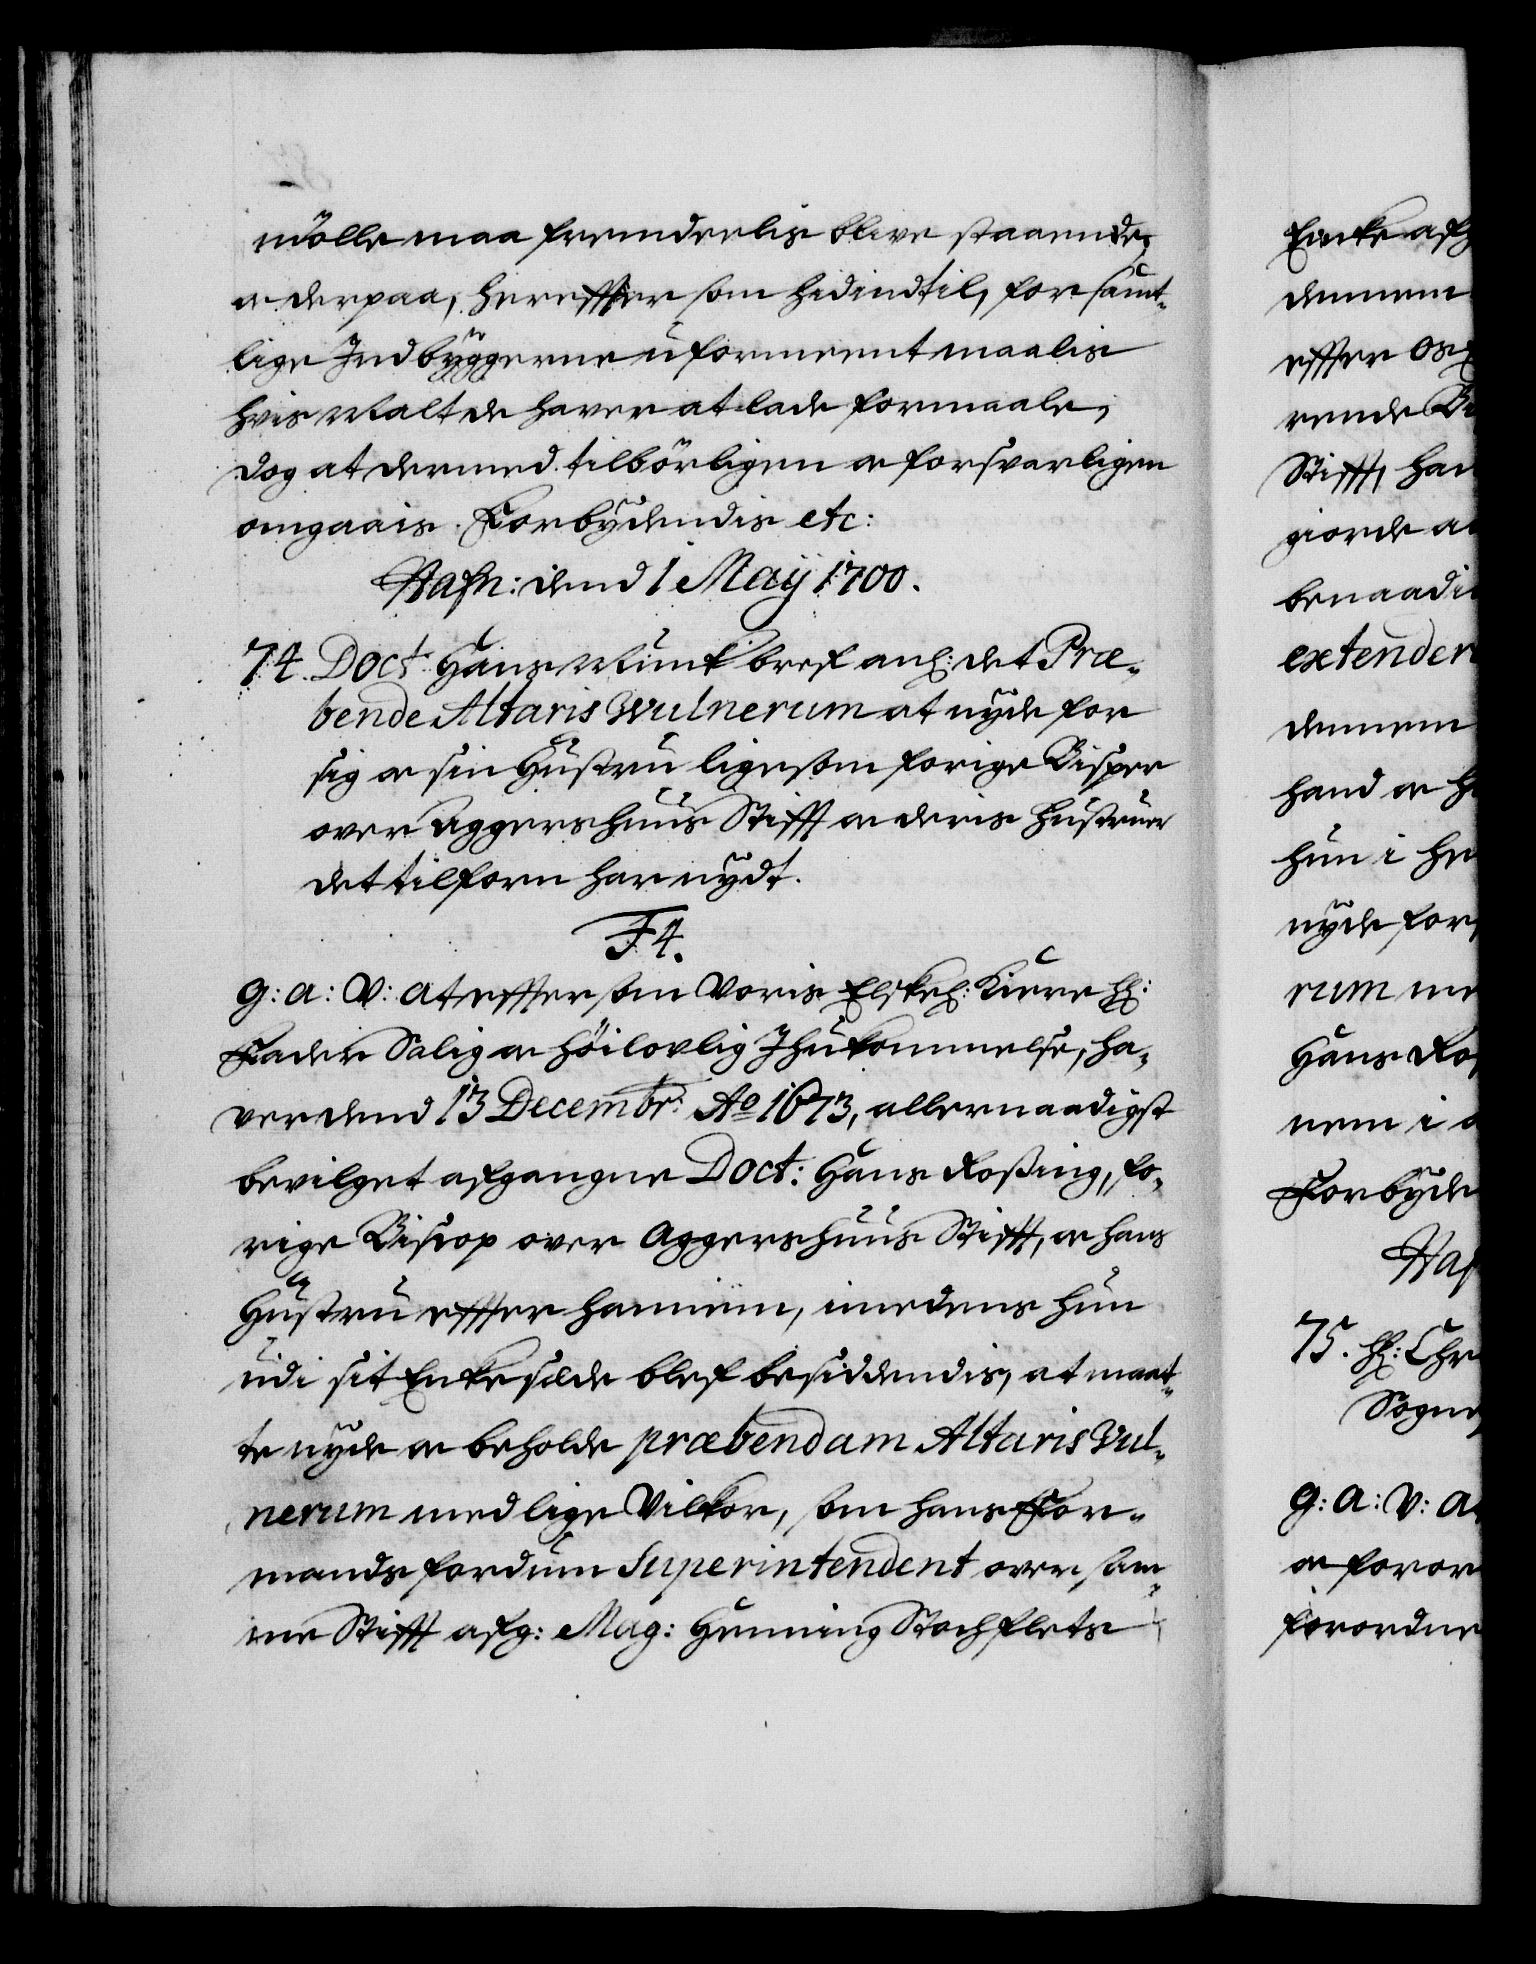 mölle maa fremdeelis blive staaende,
oc derpaa, hereffter som hidindtil, for samt-
lige Indbÿggerne uformeent maalis
hvis Malt de haver at lade formaale,
dog at dermed tilbörligen oc forsvarligen
omgaais. Forbÿdendis etc:
Hafn: dend 1 Maÿ 1700.
74. Doct: Hans Munk bref anl: det Præ-
bende Altaris Vulnerum at nÿde for
sig oc sin Hustru ligesom forige Bisper
over Aggershuus Stifft oc deris Hustruer
det tilforn har nÿdt.
F4.
G: A: V: At effter som Voris Elskel: Kiere Hr:
Fader Salig oc Höilovlig Ihukommelse, ha-
ver dend 13 Decembr: Ao 1673, allernaadigst
bevilget afgangne Doct: Hans Rosing, fo-
rige Biscop over Aggershuus Stifft, oc hans
Hustru effter hannem, imedens hun
udi sit Enkesæde blef besiddendis, at maat-
te nÿde oc beholde præbendam Altaris Vul-
nerum med lige Vilkor, som hans For-
mands fordum Superintendent over sam-
me Stifft afg: Mag: Henning Stochflets
Encke afg
dennem
effter os
rende Bi
Stifft, han
giorde a
benaadi
extender
dennem
hand oc h
hun i he
nÿde for
rum me
Hans Ros
nem i
Forbÿde
Haf
75. Hr: Chr
Sogne
G: A: V: A
oc foror
forordne